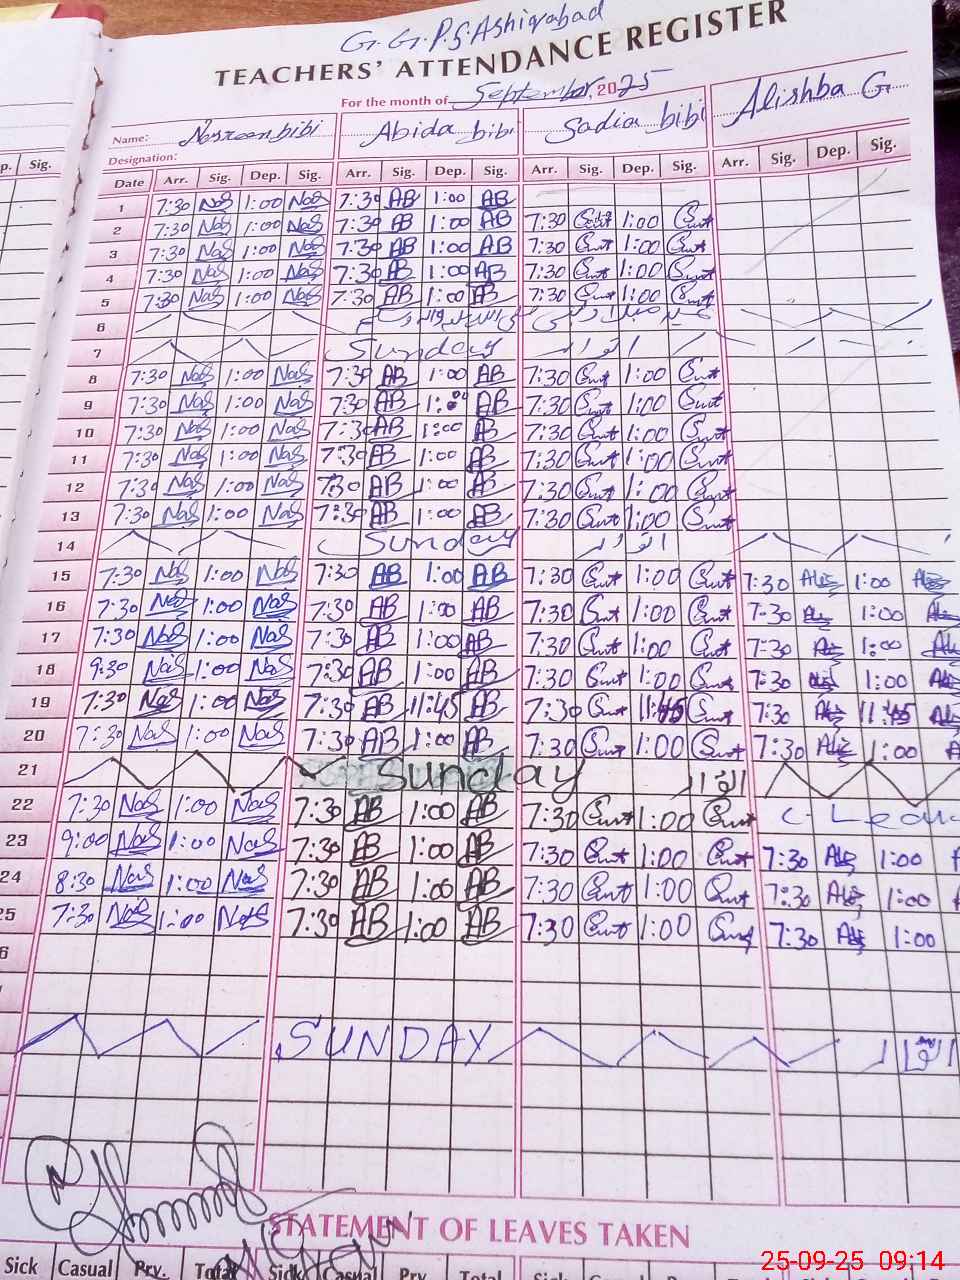 G.G.P.S Ashiqabad
TEACHERS' ATTENDANCE REGISTER
For the month of September, 2025
Name: Nasreen bibi Abida bibi Sadia bibi Alishba G
Designation:
p. Sig. Date Arr. Sig. Dep. Sig. Arr. Sig. Dep. Sig. Arr. Sig. Dep. Sig. Arr. Sig. Dep. Sig.
1 7:30 NaS 1:00 NaS 7:30 AB 1:00 AB
2 7:30 NaS 1:00 NaS 7:30 AB 1:00 AB 7:30 1:00
3 7:30 NaS 1:00 NaS 7:30 AB 1:00 AB 7:30 1:00
4 7:30 NaS 1:00 NaS 7:30 AB 1:00 AB 7:30 1:00
5 7:30 NaS 1:00 NaS 7:30 AB 1:00 AB 7:30 1:00
6
7 Sunday اتوار
8 7:30 NaS 1:00 NaS 7:30 AB 1:00 AB 7:30 1:00
9 7:30 NaS 1:00 NaS 7:30 AB 1:00 AB 7:30 1:00
10 7:30 NaS 1:00 NaS 7:30 AB 1:00 AB 7:30 1:00
11 7:30 NaS 1:00 NaS 7:30 AB 1:00 AB 7:30 1:00
12 7:30 NaS 1:00 NaS 7:30 AB 1:00 AB 7:30 1:00
13 7:30 NaS 1:00 NaS 7:30 AB 1:00 AB 7:30 1:00
14 Sunday اتوار
15 7:30 NaS 1:00 NaS 7:30 AB 1:00 AB 7:30 1:00 7:30 Alis 1:00 Alis
16 7:30 NaS 1:00 NaS 7:30 AB 1:00 AB 7:30 1:00 7:30 Alis 1:00 Alis
17 7:30 NaS 1:00 NaS 7:30 AB 1:00 AB 7:30 1:00 7:30 Alis 1:00
18 9:30 NaS 1:00 NaS 7:30 AB 1:00 AB 7:30 1:00 7:30 Alis 1:00
19 7:30 NaS 1:00 NaS 7:30 AB 11:45 AB 7:30 11:45 7:30 Alis 11:45
20 7:30 NaS 1:00 NaS 7:30 AB 1:00 AB 7:30 1:00 7:30 Alis 1:00
21 Sunday اتوار
22 7:30 NaS 1:00 NaS 7:30 AB 1:00 AB 7:30 1:00 C-Leav
23 9:00 NaS 1:00 NaS 7:30 AB 1:00 AB 7:30 1:00 7:30 Alis 1:00
24 8:30 NaS 1:00 NaS 7:30 AB 1:00 AB 7:30 1:00 7:30 Alis 1:00
25 7:30 NaS 1:00 NaS 7:30 AB 1:00 AB 7:30 1:00 7:30 Alis 1:00
6
SUNDAY اتوار
STATEMENT OF LEAVES TAKEN
Sick Casual Prv. Total Sick Casual Prv Total Sick
25-09-25 09:14